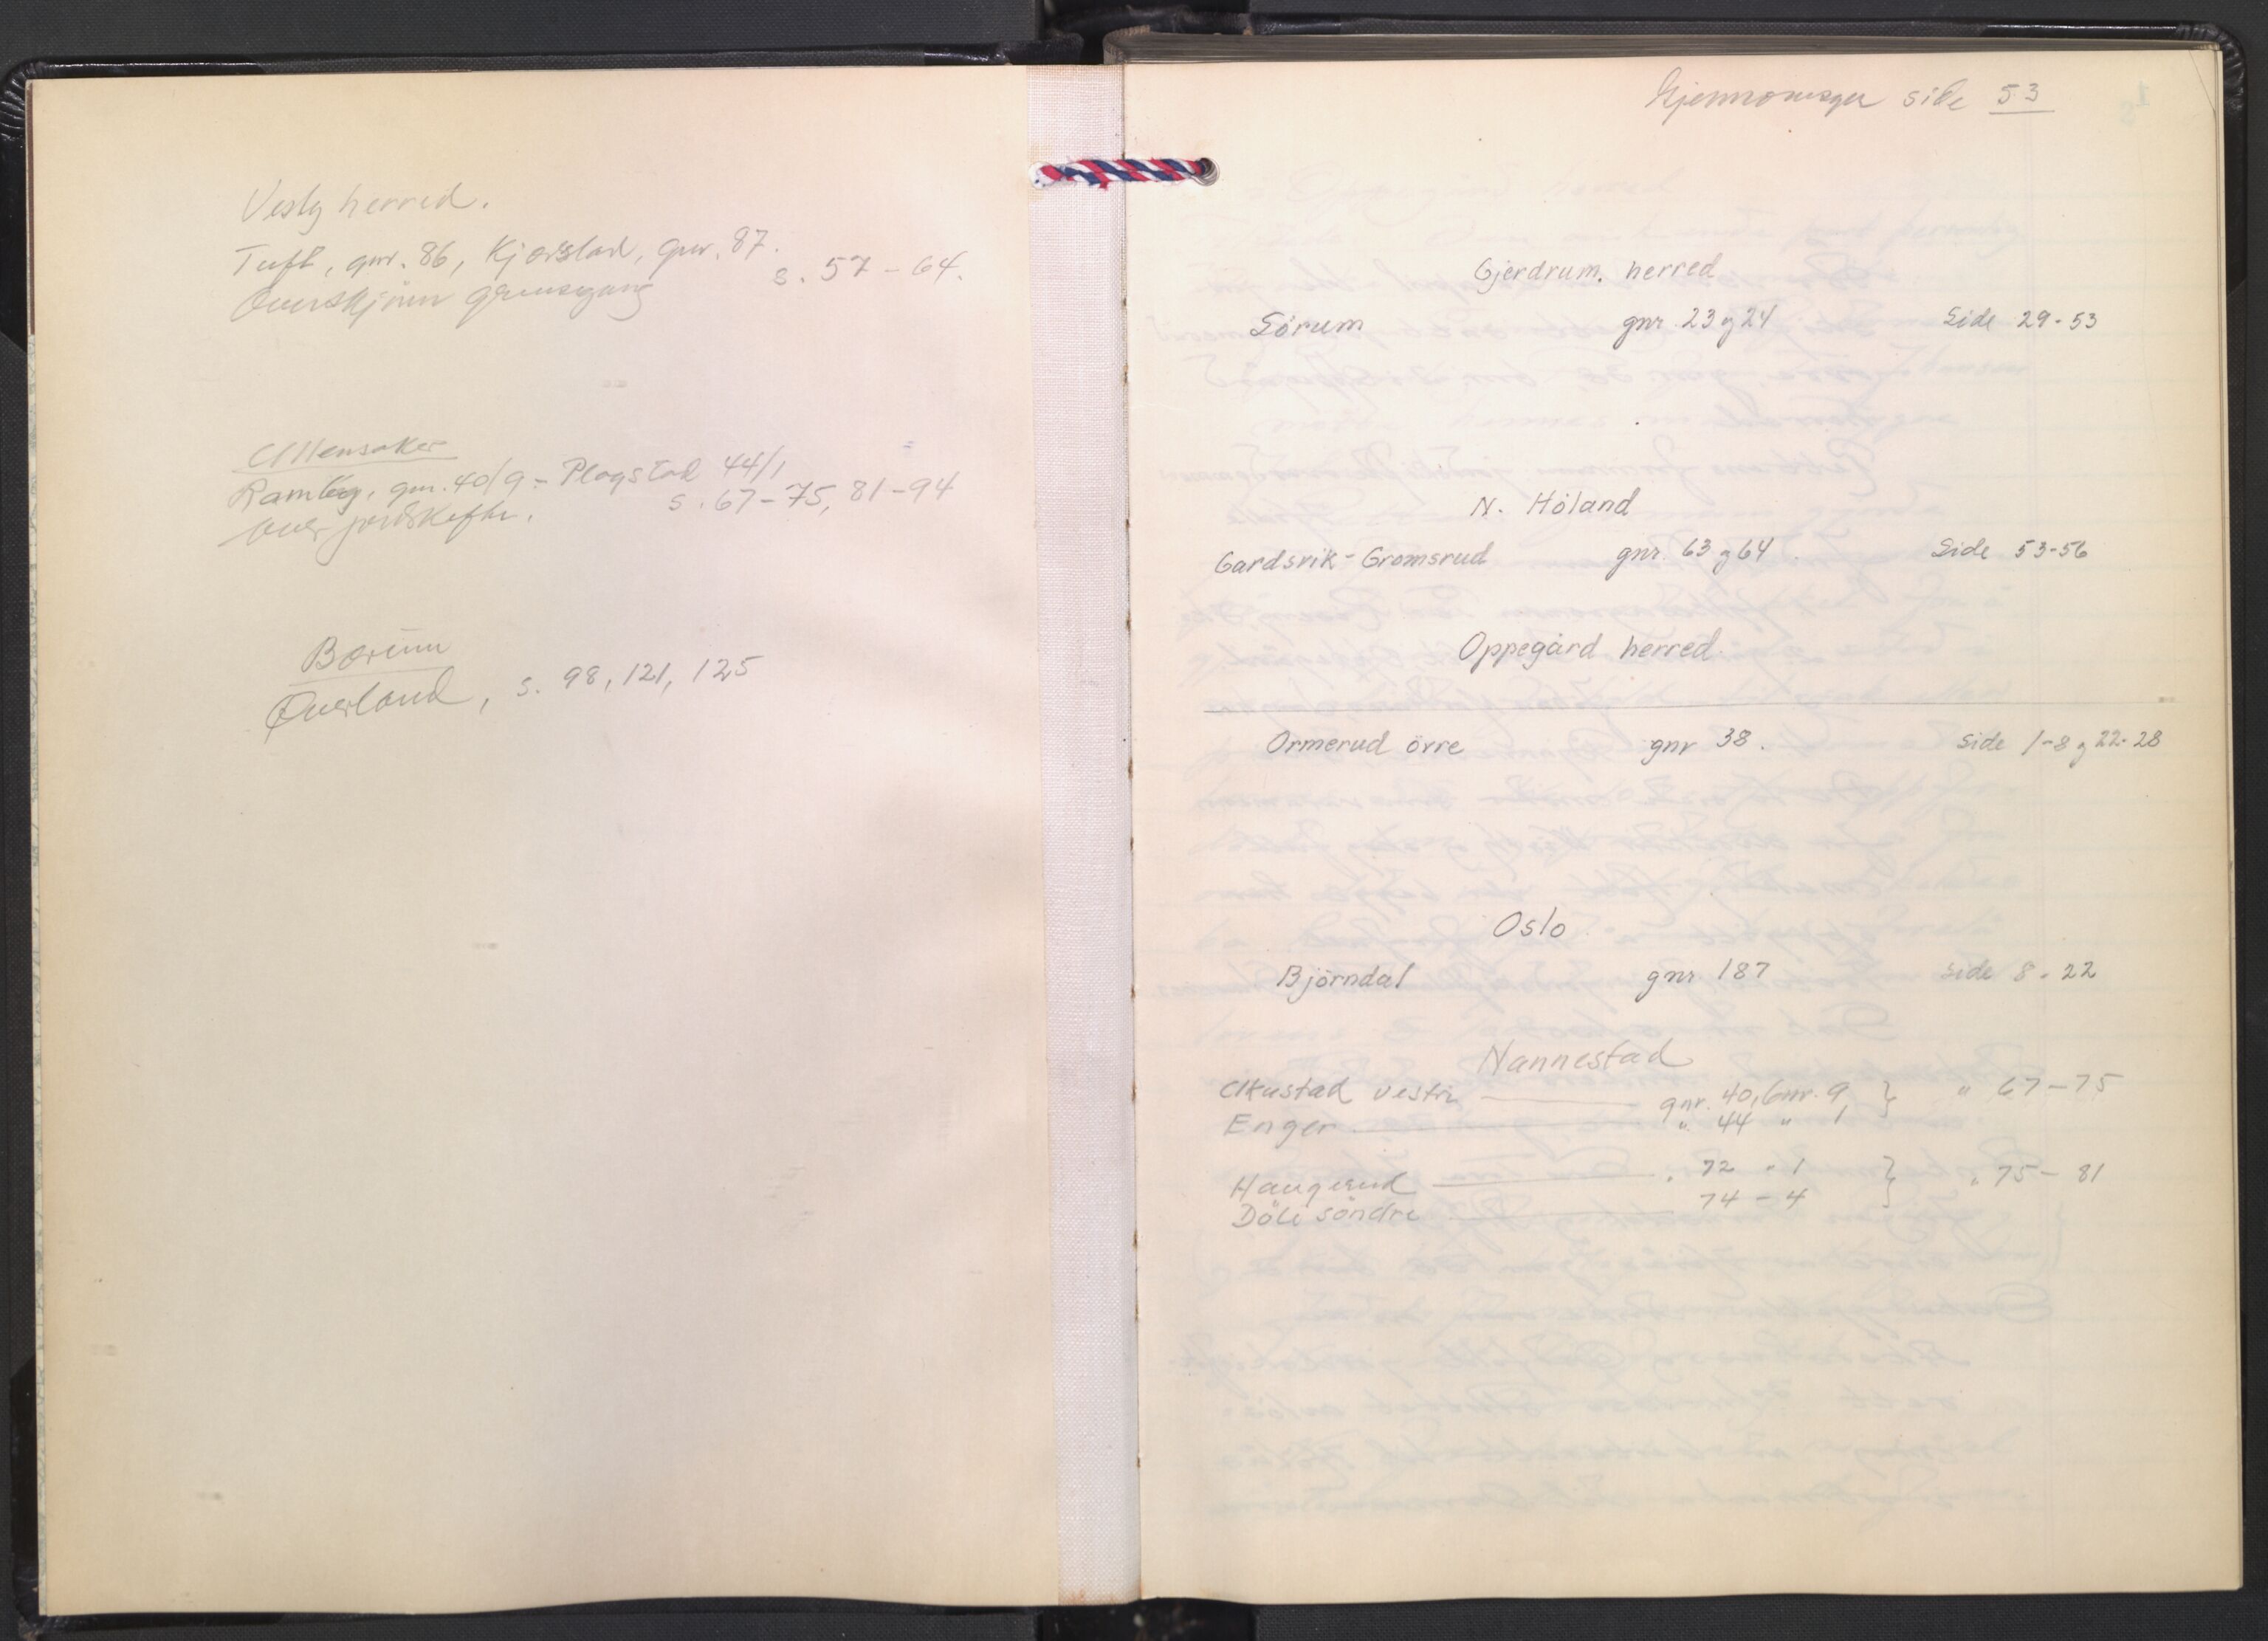 Vestby herred.
Tuft, gnr. 86, Kjærstad, gnr. 87.
Overskjönn grensegang s. 57 - 64.
Ullensaker
Ramberg, gnr. 40/9 - Plogstad 44/1
Over jordskifte. s. 67 - 75, 81 - 94
Bærum
Øverland, s. 98, 121, 125
side 53
Gjerdrum. herred
Sörum gnr. 23 og 24 Side 29 - 53
N. Höland
Gardsvik - Gromsrud gnr. 63 og 64. Side 53-56
Oppegård herred.
Ormerud övre gnr 38. side 1-8 og 22-28
Oslo
Björndal gnr 187 side 8 - 22
Nannestad
Åkustad vestre gnr. 40, bnr. 9 } " 67 - 75
Enger " 44 " 1
Haugerud " 72 " 1 } " 75 - 81
Döli söndre 74 - 4